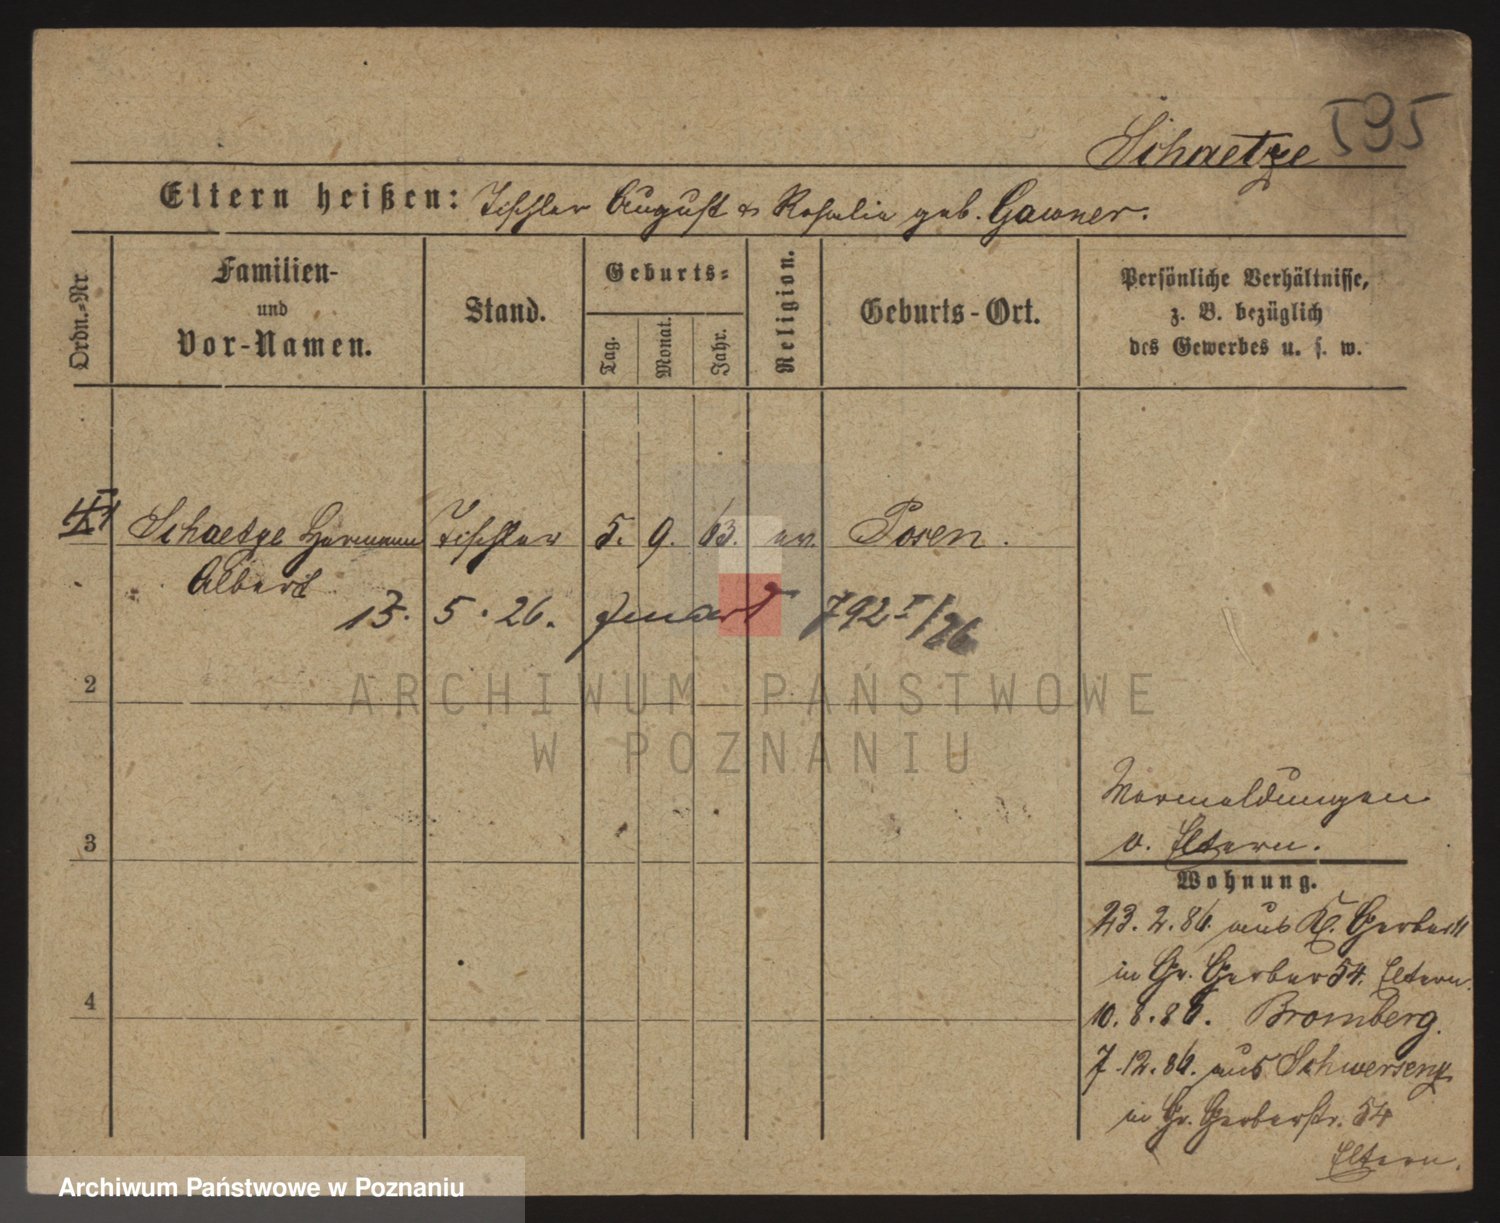 595
Schaetze
Eltern heißen: Tischler August & Rosalie geb. Gawner.
Ordn.-Nr
Familien-
und
Vor-Namen.
Stand.
Geburts-
Tag.
Monat.
Jahr.
Religion.
Geburts-Ort.
Persönliche Verhältnisse,
z. B. bezüglich
des Gewerbes u. s. w.
Schaetze Hermann Tischler 5. 9. 63. ev. Posen.
Albert
13. 5. 26. 792 I/26
ARCHIWUM PAŃSTWOWE
W POZNANIU
2
3
4
Vormeldungen
v. Eltern.
Wohnung.
23. 2. 86. aus Kl. Gerberstr
in Gr. Gerber 54. Eltern.
10. 8. 86. Bromberg.
7. 12. 86. aus Schwersenz
in Gr. Gerberstr. 54
Eltern.
Archiwum Państwowe w Poznaniu